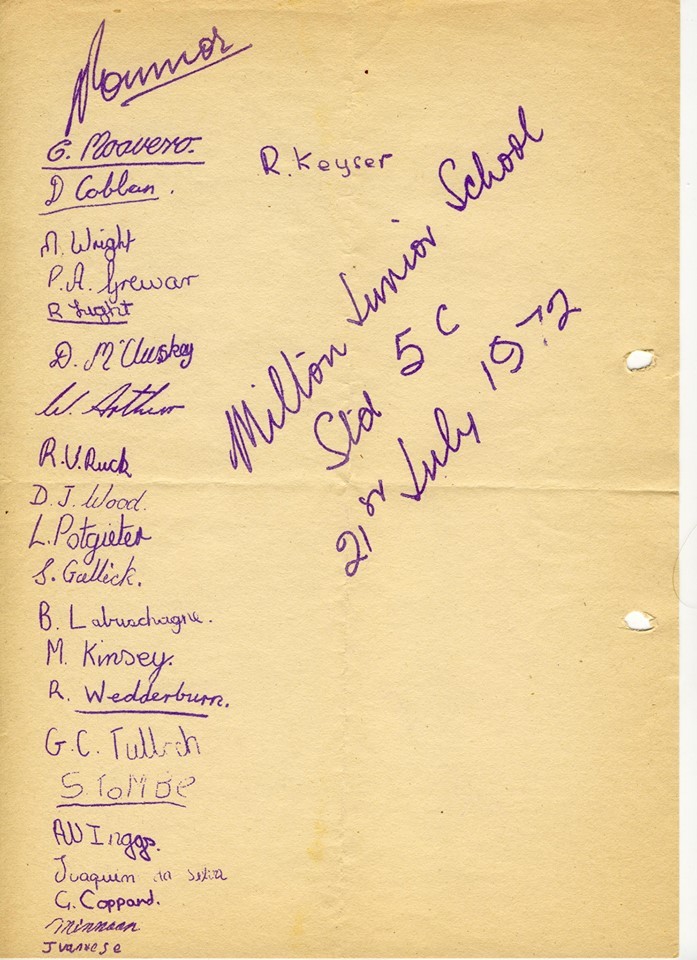 G. Moavero.
R. Keyser
D Cobban.
M. Wright
P.A. Grewar
R Light
D. McCluskey
W. Arthur
R.V. Ruck
D. J. Wood.
L. Potgieter
S. Gullick.
B. Labuschagne.
M. Kinsey.
R. Wedderburn.
G.C. Tulloch
S. TOMBE
AW Inggs.
Joaquim da Silva
G. Coppard.
Milton Junior School
Std 5 C
21st July 1972